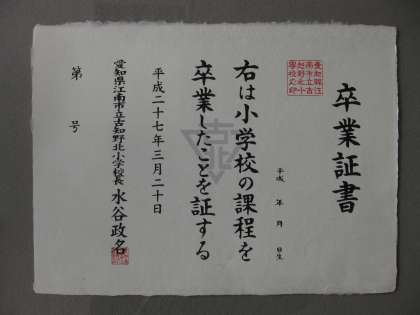 卒業証書
平成 年 月 日生
右は小学校の課程を
卒業したことを証する
平成二十七年三月二十日
愛知県江南市立古知野北小学校長 水谷政名
第 号